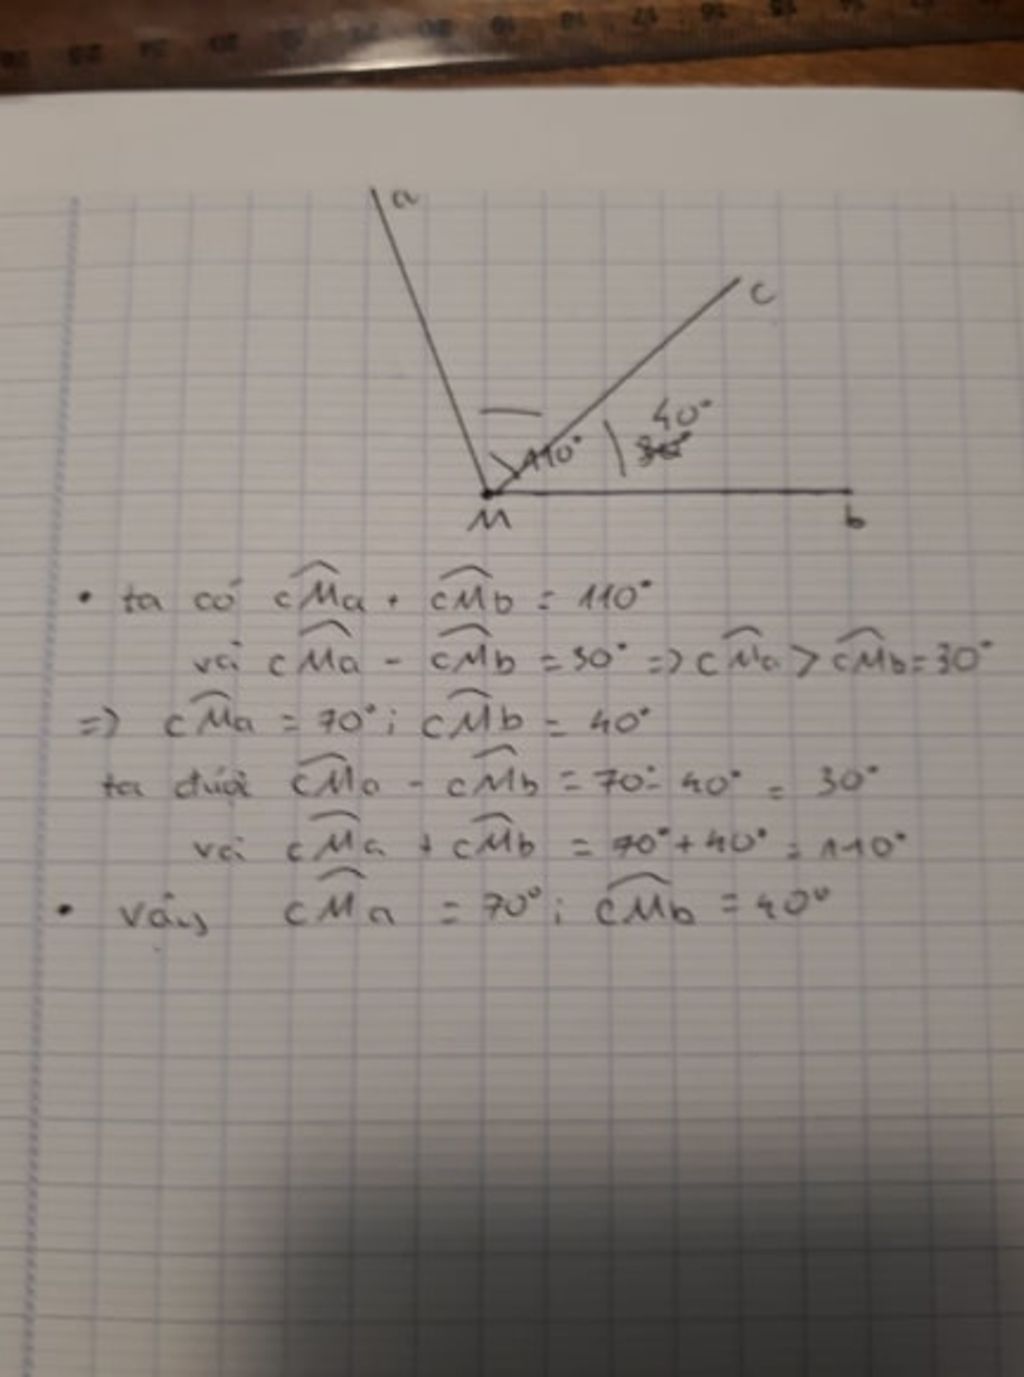 a
c
40°
110°
M
b
• ta có cMa + cMb = 110°
và cMa - cMb = 30° => cMa > cMb = 30°
=> cMa = 70° ; cMb = 40°
ta được cMa - cMb = 70° - 40° = 30°
và cMa + cMb = 70° + 40° = 110°
• vậy cMa = 70° ; cMb = 40°